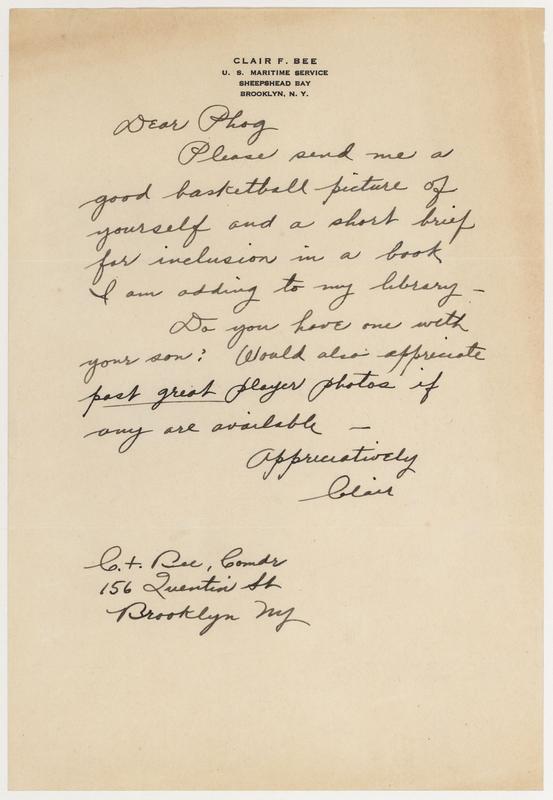 CLAIR F. BEE
U. S. MARITIME SERVICE
SHEEPSHEAD BAY
BROOKLYN, N. Y.
Dear Phog
Please send me a
good basketball picture of
yourself and a short brief
for inclusion in a book
I am adding to my library –
Do you have one with
your son? Would also appreciate
past great player photos if
any are available –
Appreciatively
Clair
C. F. Bee, Comdr
156 Quentin St
Brooklyn NY